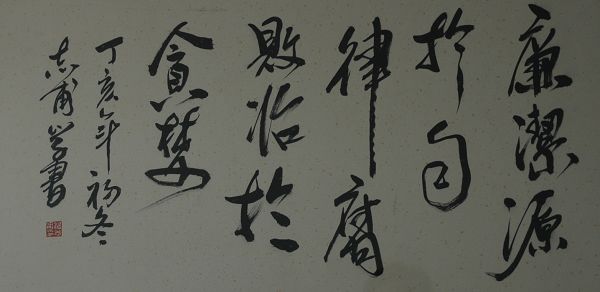 廉潔源
於自
律腐
敗始於
貪婪
丁亥年初冬
志甫学書